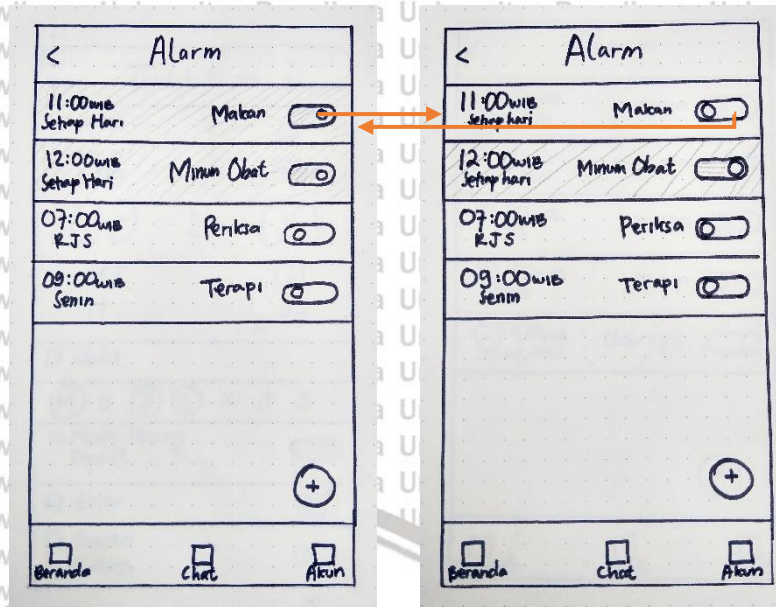 < Alarm
11:00 WIB
Setiap Hari
Makan
12:00 WIB
Setiap Hari
Minum Obat
07:00 WIB
RJS
Periksa
09:00 WIB
Senin
Terapi
+
Beranda Chat Akun
< Alarm
11:00 WIB
Setiap hari
Makan
12:00 WIB
Setiap hari
Minum Obat
07:00 WIB
RJS
Periksa
09:00 WIB
Senin
Terapi
+
Beranda Chat Akun